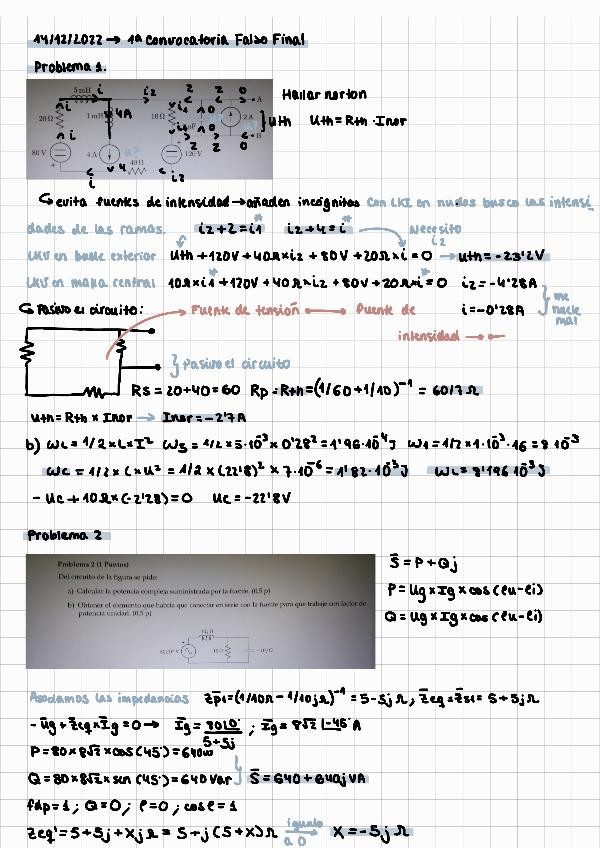 14/12/2022 → 1ª Convocatoria Falso Final
Problema 1.
Hallar norton
Uth = Rth · Inor
5 mH i i2 2 2 0 A
20Ω 1 mH 4A 10Ω 2 A Uth
80 V 4 A 40Ω 120 V B
↳ evita fuentes de intensidad → añaden incógnitas con LKI en nudos busco las intensi
dades de las ramas. i2+2=i1* i2+4=i* Necesito i2
LKV en bucle exterior Uth+120V+40Ω×i2+80V+20Ω×i=0 → Uth=-23'2V
LKV en malla central 10Ω×i1+120V+40Ω×i2+80V+20Ω×i=0 i2=-4'28A
↳ Pasivo el circuito: Fuente de tensión Fuente de i=-0'28A
intensidad
me huele mal
} Pasivo el circuito
RS = 20+40=60 Rp=Rth=(1/60+1/10)⁻¹ = 60/7 Ω
Uth = Rth × Inor → Inor=-2'7A
b) WL=1/2×L×I² W5=1/2×5·10⁻³×0'28²=1'96·10⁻⁴J W1=1/2×1·10⁻³·16=8·10⁻³
WC=1/2×C×U²=1/2×(22'8)²×7·10⁻⁶=1'82·10⁻³J WL=8'196·10⁻³J
- Uc+10Ω×(-2'28)=0 Uc=-22'8V
Problema 2
Problema 2 (1 Puntos)
Del circuito de la figura se pide:
a) Calcular la potencia compleja suministrada por la fuente. (0,5 p)
b) Obtener el elemento que habría que conectar en serie con la fuente para que trabaje con factor de
potencia unidad. (0,5 p)
S̄ = P+Qj
P=Ug×Ig×cos(ℓu-ℓi)
Q=Ug×Ig×cos(ℓu-ℓi)
Asociamos las impedancias Z̄p1=(1/10Ω-1/10jΩ)⁻¹=5-5jΩ, Z̄eq=Z̄s1=5+5jΩ
-Ūg+Z̄eq×Īg=0 → Īg=80|0°/5+5j ; Īg=8√2 |-45° A
P=80×8√2×cos(45°)=640W
Q=80×8√2×sen(45°)=640Var } S̄=640+640jVA
fdp=1; Q=0; ℓ=0; cosℓ=1
Zeq'=5+5j+XjΩ=5+j(5+X)Ω igualo a 0 → X=-5jΩ